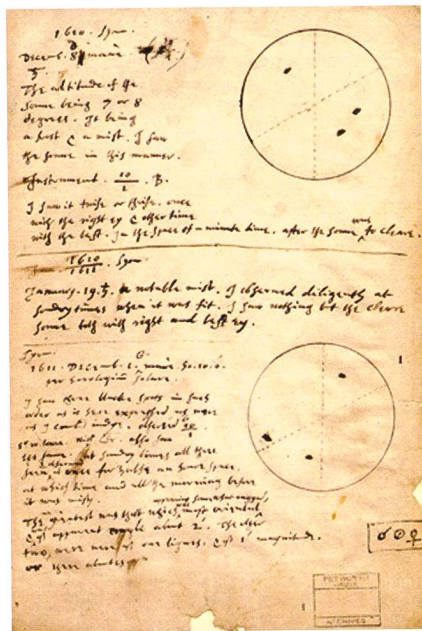 1610. Syon.
Decemb. 8 mane
The altitude of the
sonne being 7 or 8
degrees. It being
a frost & a mist. I saw
the sonne in this manner.
Instrument. 10/1 . B.
I saw it twise or thrise. once
with the right ey & other time
with the left. In the space of a minute time. after the sonne was to cleare.
1610/1611 Syon.
January. 19. a notable mist. I observed diligently at
sondry times when it was fit. I saw nothing but the cleare
sonne both with right and left ey.
Syon.
1611. Decemb. 1. mane ho. 10. 0.
per horologium Solare.
I saw three blacke spots in such
order as is here expressed as nere
as I could judge. observed 10
also saw
the same. at sondry times all three
seen & observed for halfe an houre space.
at which time and all the morning before
it was misty.
The greatest was that which was most oriental
apparent angle about 2'. The other
two, were 1' magnitude.
or there about
1
PETWORTH HOUSE
ARCHIVES
1